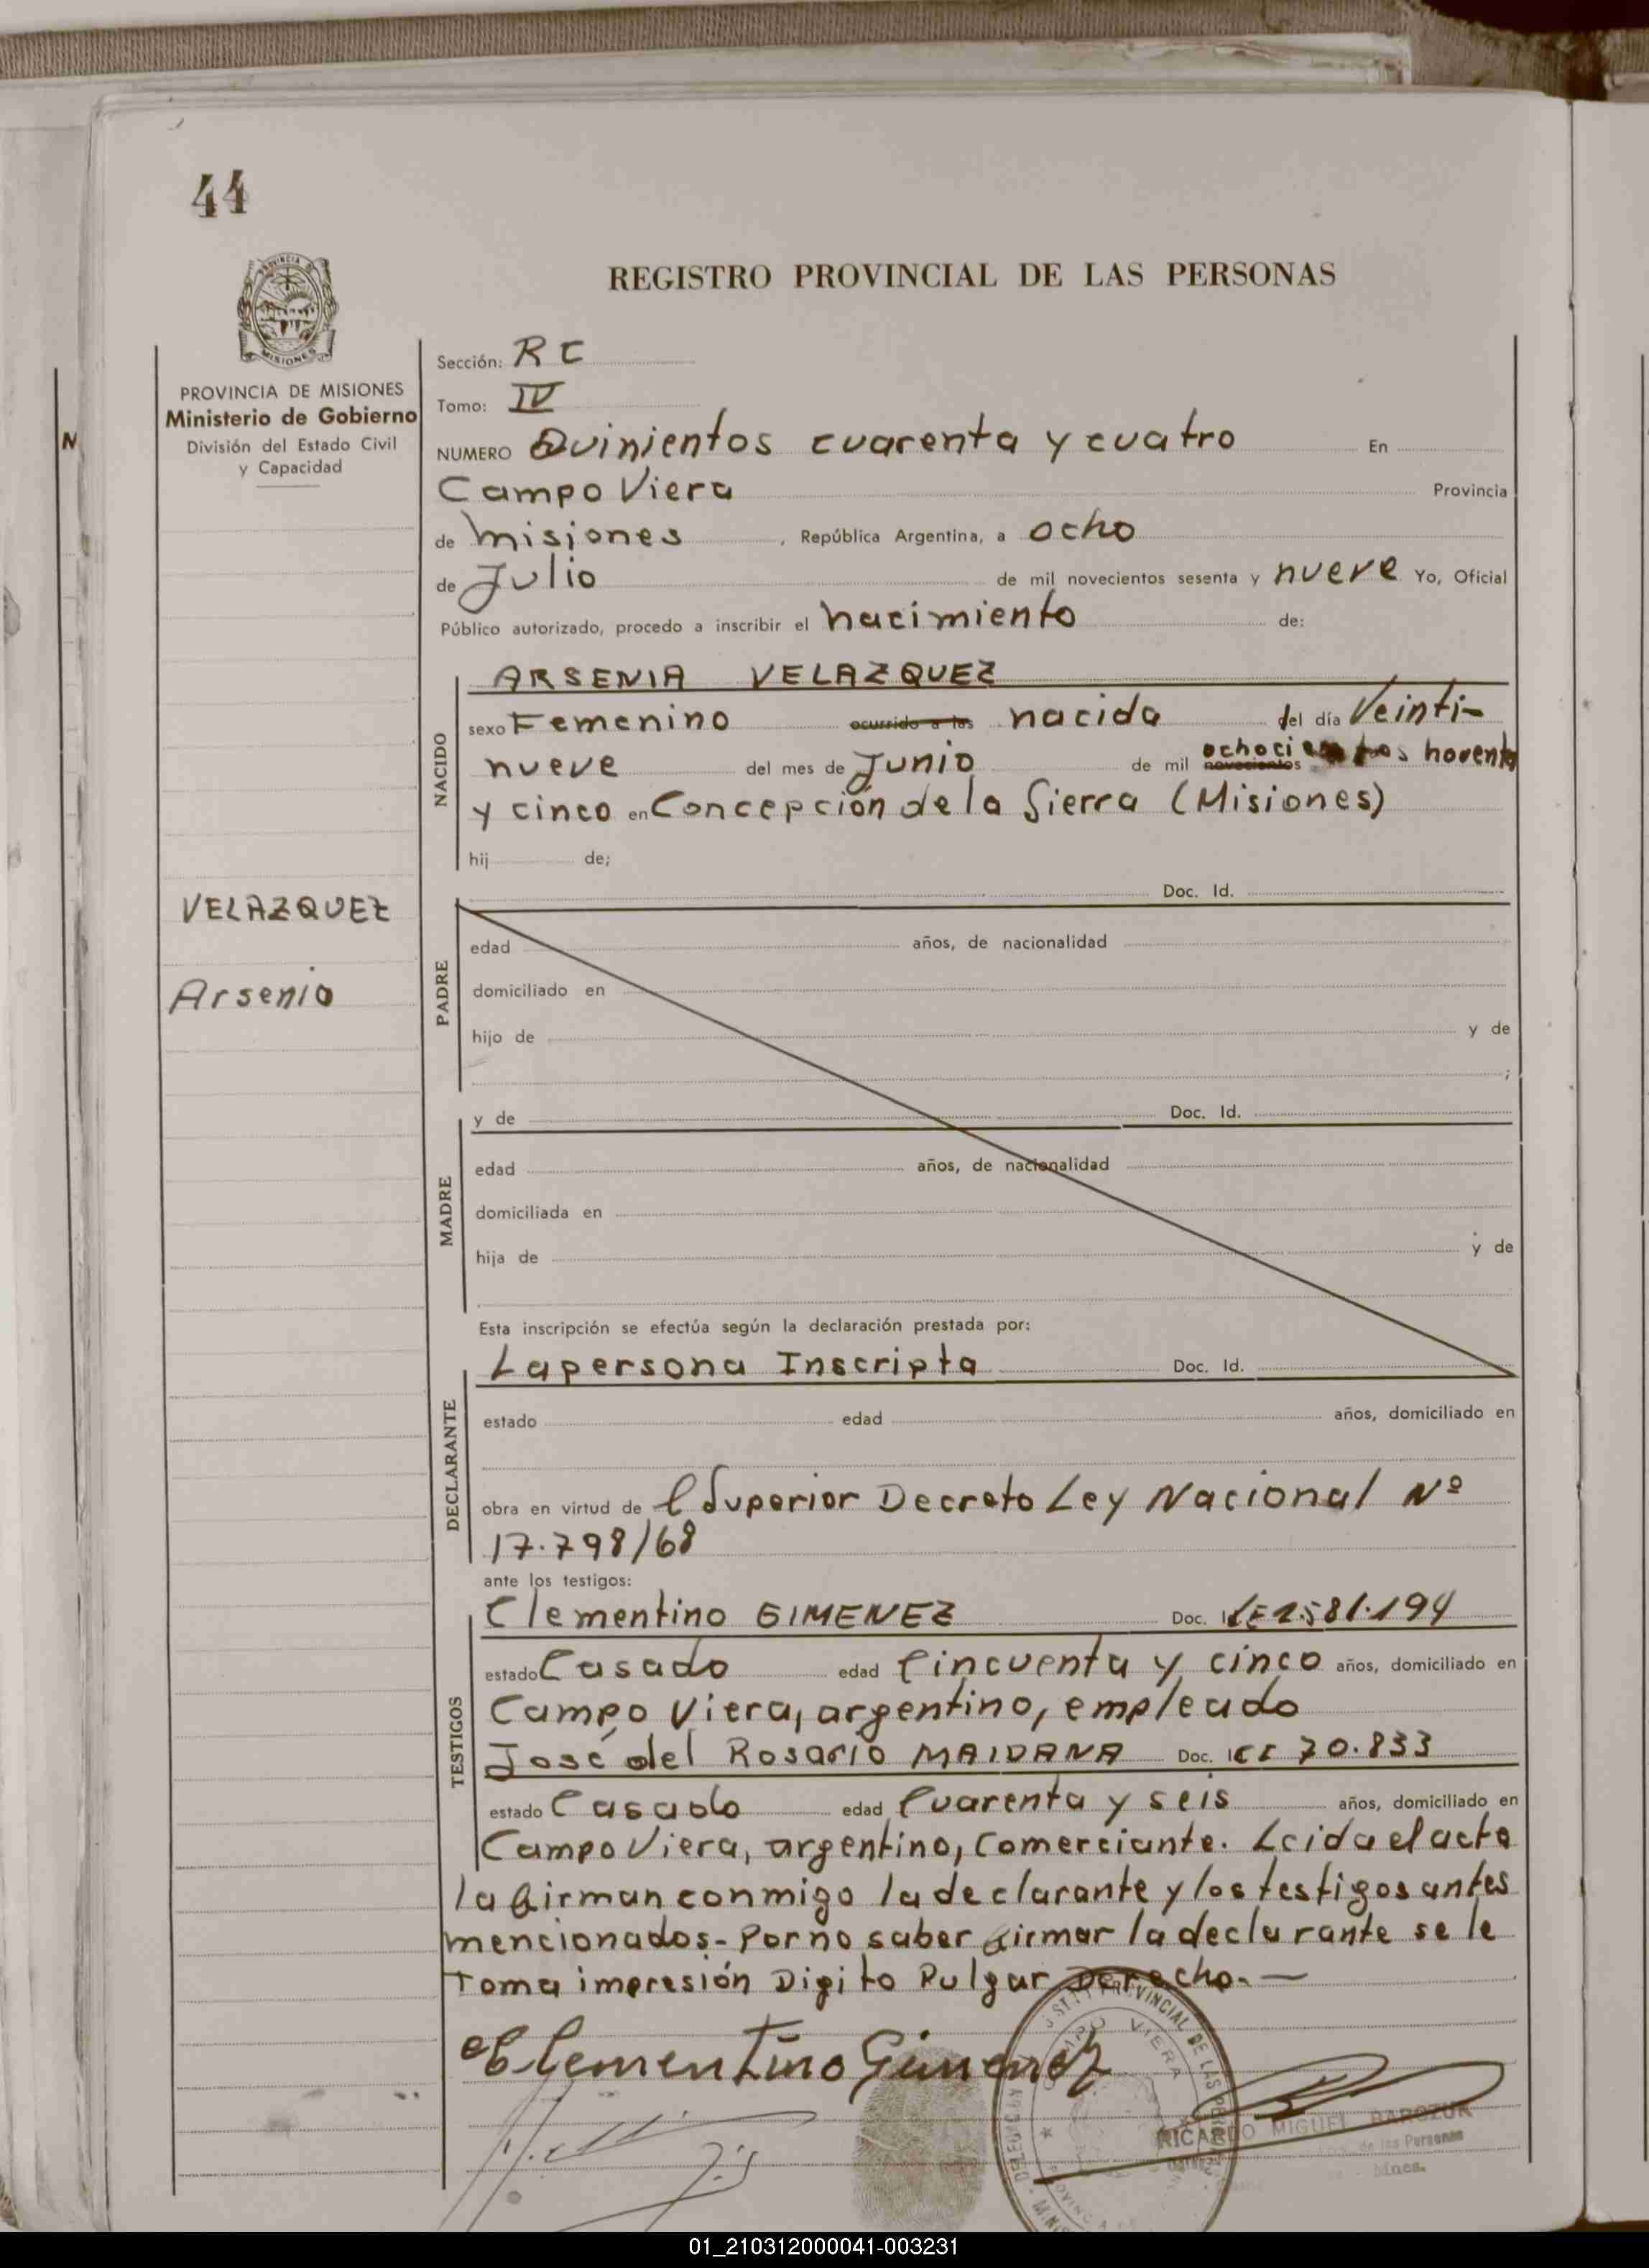 44
REGISTRO PROVINCIAL DE LAS PERSONAS
PROVINCIA DE MISIONES
Ministerio de Gobierno
División del Estado Civil
y Capacidad
Sección: RC
Tomo: IV
NUMERO Quinientos cuarenta y cuatro En
Campo Viera Provincia
de misiones, República Argentina, a ocho
de Julio de mil novecientos sesenta y nueve Yo, Oficial
Público autorizado, procedo a inscribir el nacimiento de:
NACIDO
ARSENIA VELAZQUEZ
sexo Femenino ocurrido a las nacida del día Veinti-
nueve del mes de Junio de mil novecientos ochocientos noventa
y cinco en Concepción de la Sierra (Misiones)
hij de;
VELAZQUEZ
Arsenia
PADRE
Doc. Id.
edad años, de nacionalidad
domiciliado en
hijo de y de
;
MADRE
y de Doc. Id.
edad años, de nacionalidad
domiciliada en
hija de y de
Esta inscripción se efectúa según la declaración prestada por:
DECLARANTE
La persona Inscripta Doc. Id.
estado edad años, domiciliado en
obra en virtud de l Superior Decreto Ley Nacional Nº
17.798/68
ante los testigos:
TESTIGOS
Clementino GIMENEZ Doc. LE 2.581.194
estado Casado edad Cincuenta y cinco años, domiciliado en
Campo Viera, argentino, empleado
José del Rosario MAIDANA Doc. 70.833
estado Casado edad Cuarenta y seis años, domiciliado en
Campo Viera, argentino, Comerciante. Leida el acta
la firman conmigo la declarante y los testigos antes
mencionados- Por no saber firmar la declarante se le
toma impresión Digito Pulgar Derecho.-
Clementino Gimenez
PROVINCIAL DE LAS
CAMPO VIERA
RICARDO MIGUEL BAROZUK
de las Personas
Mnes.
01_210312000041-003231